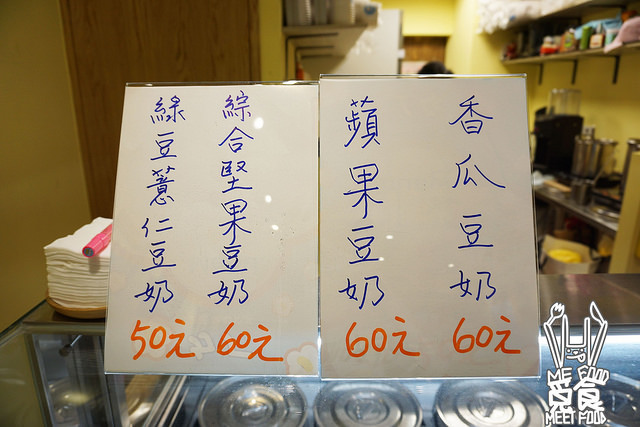 香瓜豆奶
60元
蘋果豆奶
60元
綜合堅果豆奶
60元
綠豆薏仁豆奶
50元
ME FOOD
覓食
MEET FOOD